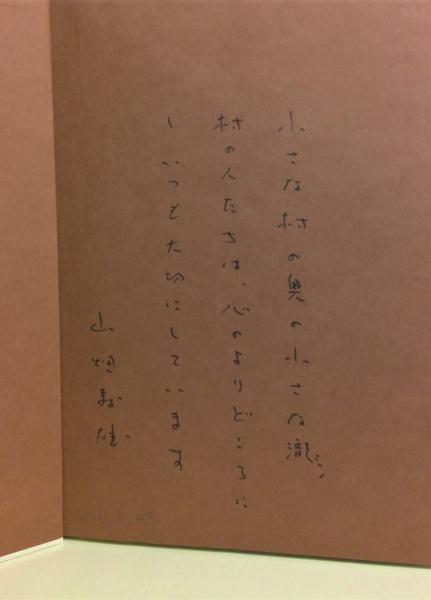 小さな村の奥の小さな瀧
村の人たちは、心のよりどころに
し いつも大切にしています
山畑